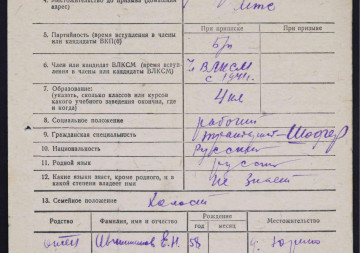 4. Местожительство до призыва (домашний
адрес)
Мтс
При приписке При призыве
5. Партийность (время вступления в члены
или кандидаты ВКП(б)
б/п
6. Член или кандидат ВЛКСМ (время вступ-
ления в члены или кандидаты ВЛКСМ)
ВЛКСМ
с 1941 г.
7. Образование:
(указать, сколько классов или курсов
какого учебного заведения окончил, где
и когда)
4 кл
8. Социальное положение рабочий
9. Гражданская специальность тракторист-Шофер
10. Национальность Русский
11. Родной язык русский
12. Какие языки знает, кроме родного, и в
какой степени владеет ими
не знает
13. Семейное положение Холост
Родство Фамилия, имя и отчество Рождение Местожительство
год месяц
отец Е.И. 58 Юрино